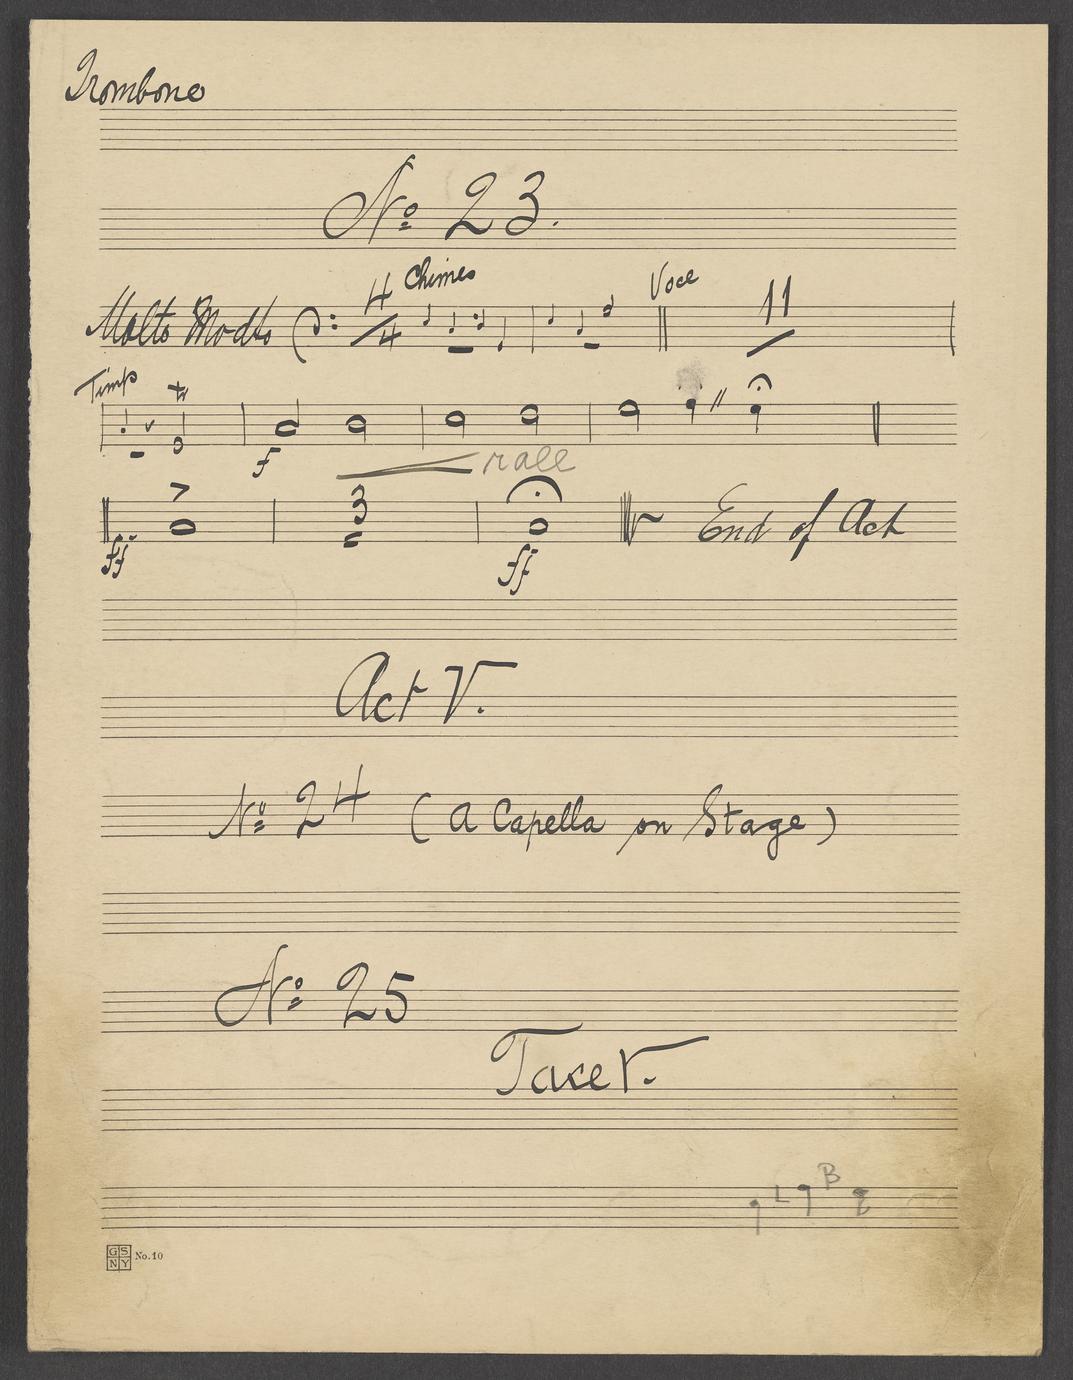 Trombone
No 23.
Molto Modto 4/4 Chimes Voce 11
Timp tr
f rall
ff 3 ff End of Act
Act V.
No 24 (A Capella on Stage)
No 25
Tacet.
L B
GS NY No. 10